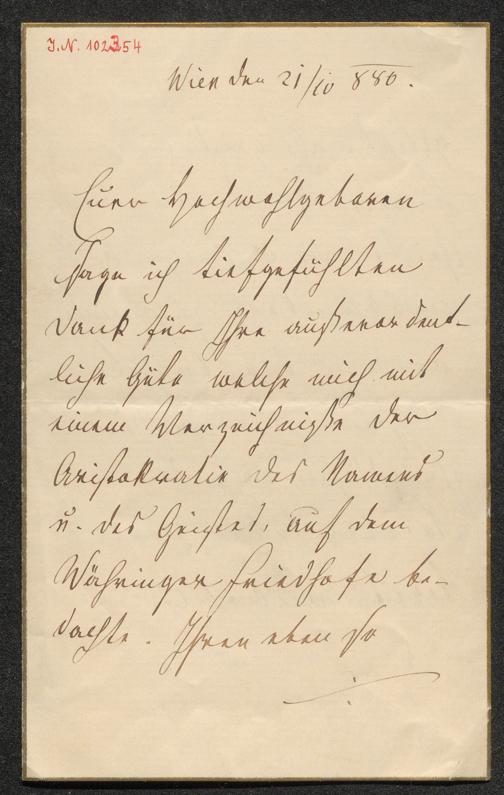 J.N. 102354
Wien den 21/10 880.
Euer Hochwohlgeboren
sage ich tiefgefühlten
Dank für Ihre außerordent-
liche Güte welche mich mit
einem Verzeichniße der
Aristokratie des Namens
u. des Geistes, auf dem
Währinger Friedhofe be-
dachte. Ihren eben so